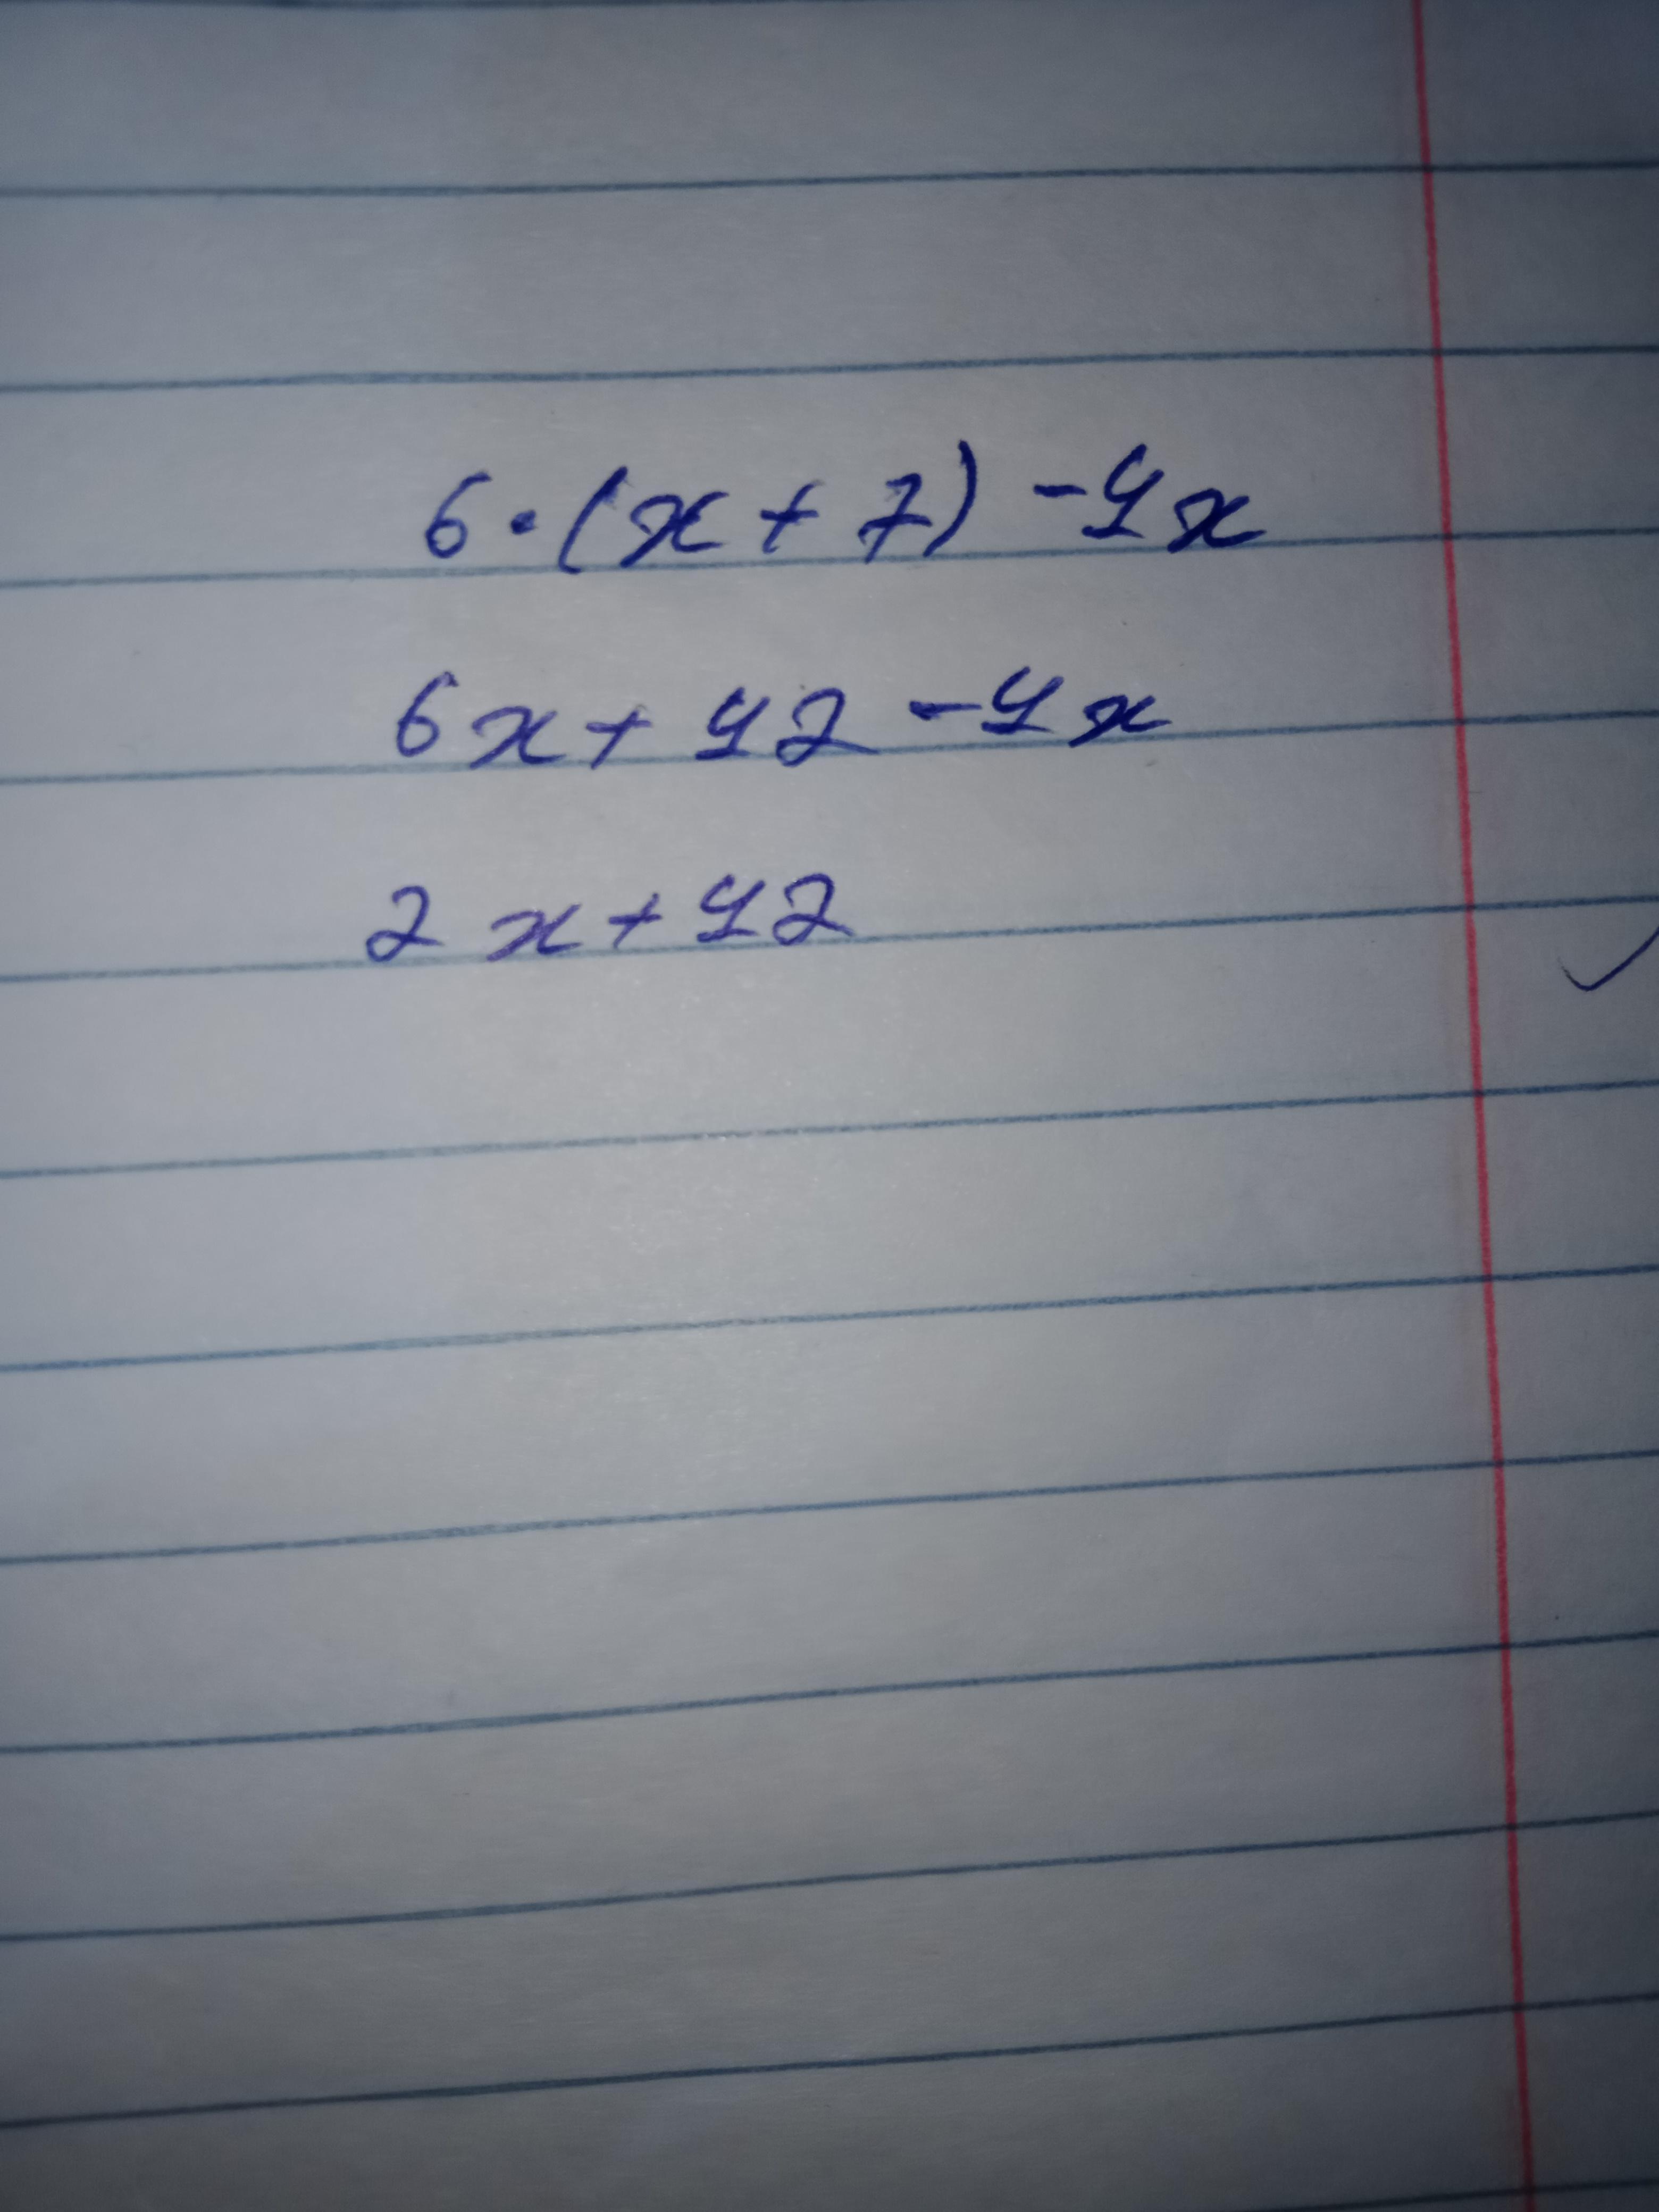 6·(x+7)-4x
6x+42-4x
2x+42